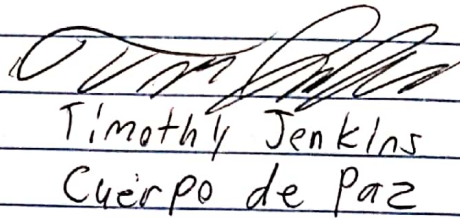 Timothy Jenkins
Cuerpo de Paz